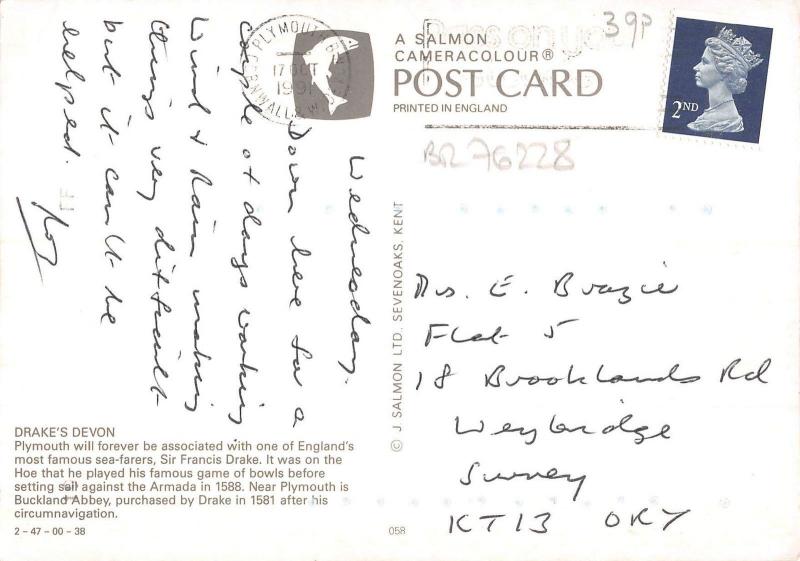 Wednesday.
Down here for a
couple of days working.
Wind & Rain making
things very difficult
but it can't be
helped.
Roy
PLYMOUTH &
CORNWALL
17 OCT
1991
A SALMON
CAMERACOLOUR®
POST CARD
PRINTED IN ENGLAND
39p
2ND
BR76228
© J. SALMON LTD. SEVENOAKS. KENT
Mrs. E. Brazie
Flat 5
18 Brooklands Rd
Weybridge
Surrey
KT13 0RY
DRAKE'S DEVON
Plymouth will forever be associated with one of England's
most famous sea-farers, Sir Francis Drake. It was on the
Hoe that he played his famous game of bowls before
setting sail against the Armada in 1588. Near Plymouth is
Buckland Abbey, purchased by Drake in 1581 after his
circumnavigation.
2-47-00-38
058